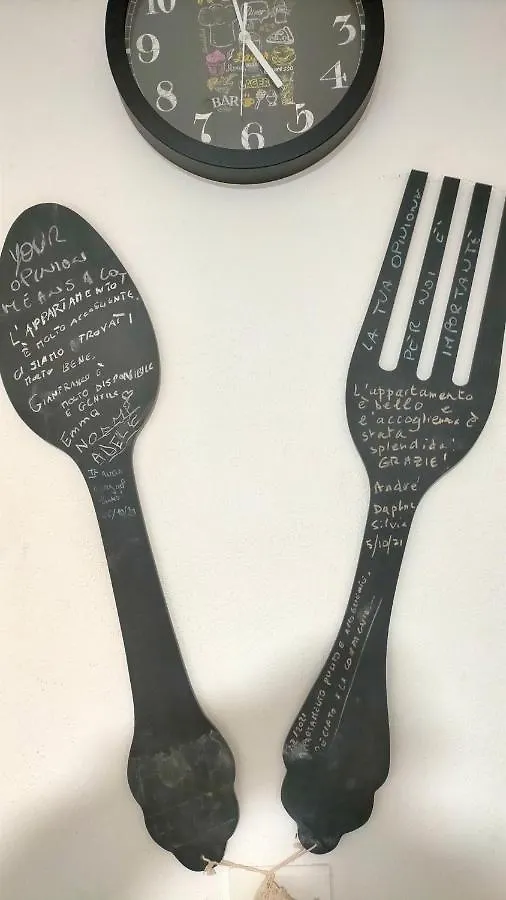 10
9
8
7
6
5
4
3
BAR
YOUR
OPINION
MEANS A LOT
L'APPARTAMENTO
È MOLTO ACCOGLIENTE.
CI SIAMO TROVATI
MOLTO BENE.
GIANFRANCO È
MOLTO DISPONIBILE
E GENTILE
EMMA
NOEMI
ADELE
LA TUA OPINIONE
PER NOI È
IMPORTANTE
L'appartamento
è bello e
l'accoglienza è
stata
splendida!
GRAZIE!
André
Daphne
Silvia
5/10/21
APPARTAMENTO PULITO E ACCOGLIENTE,